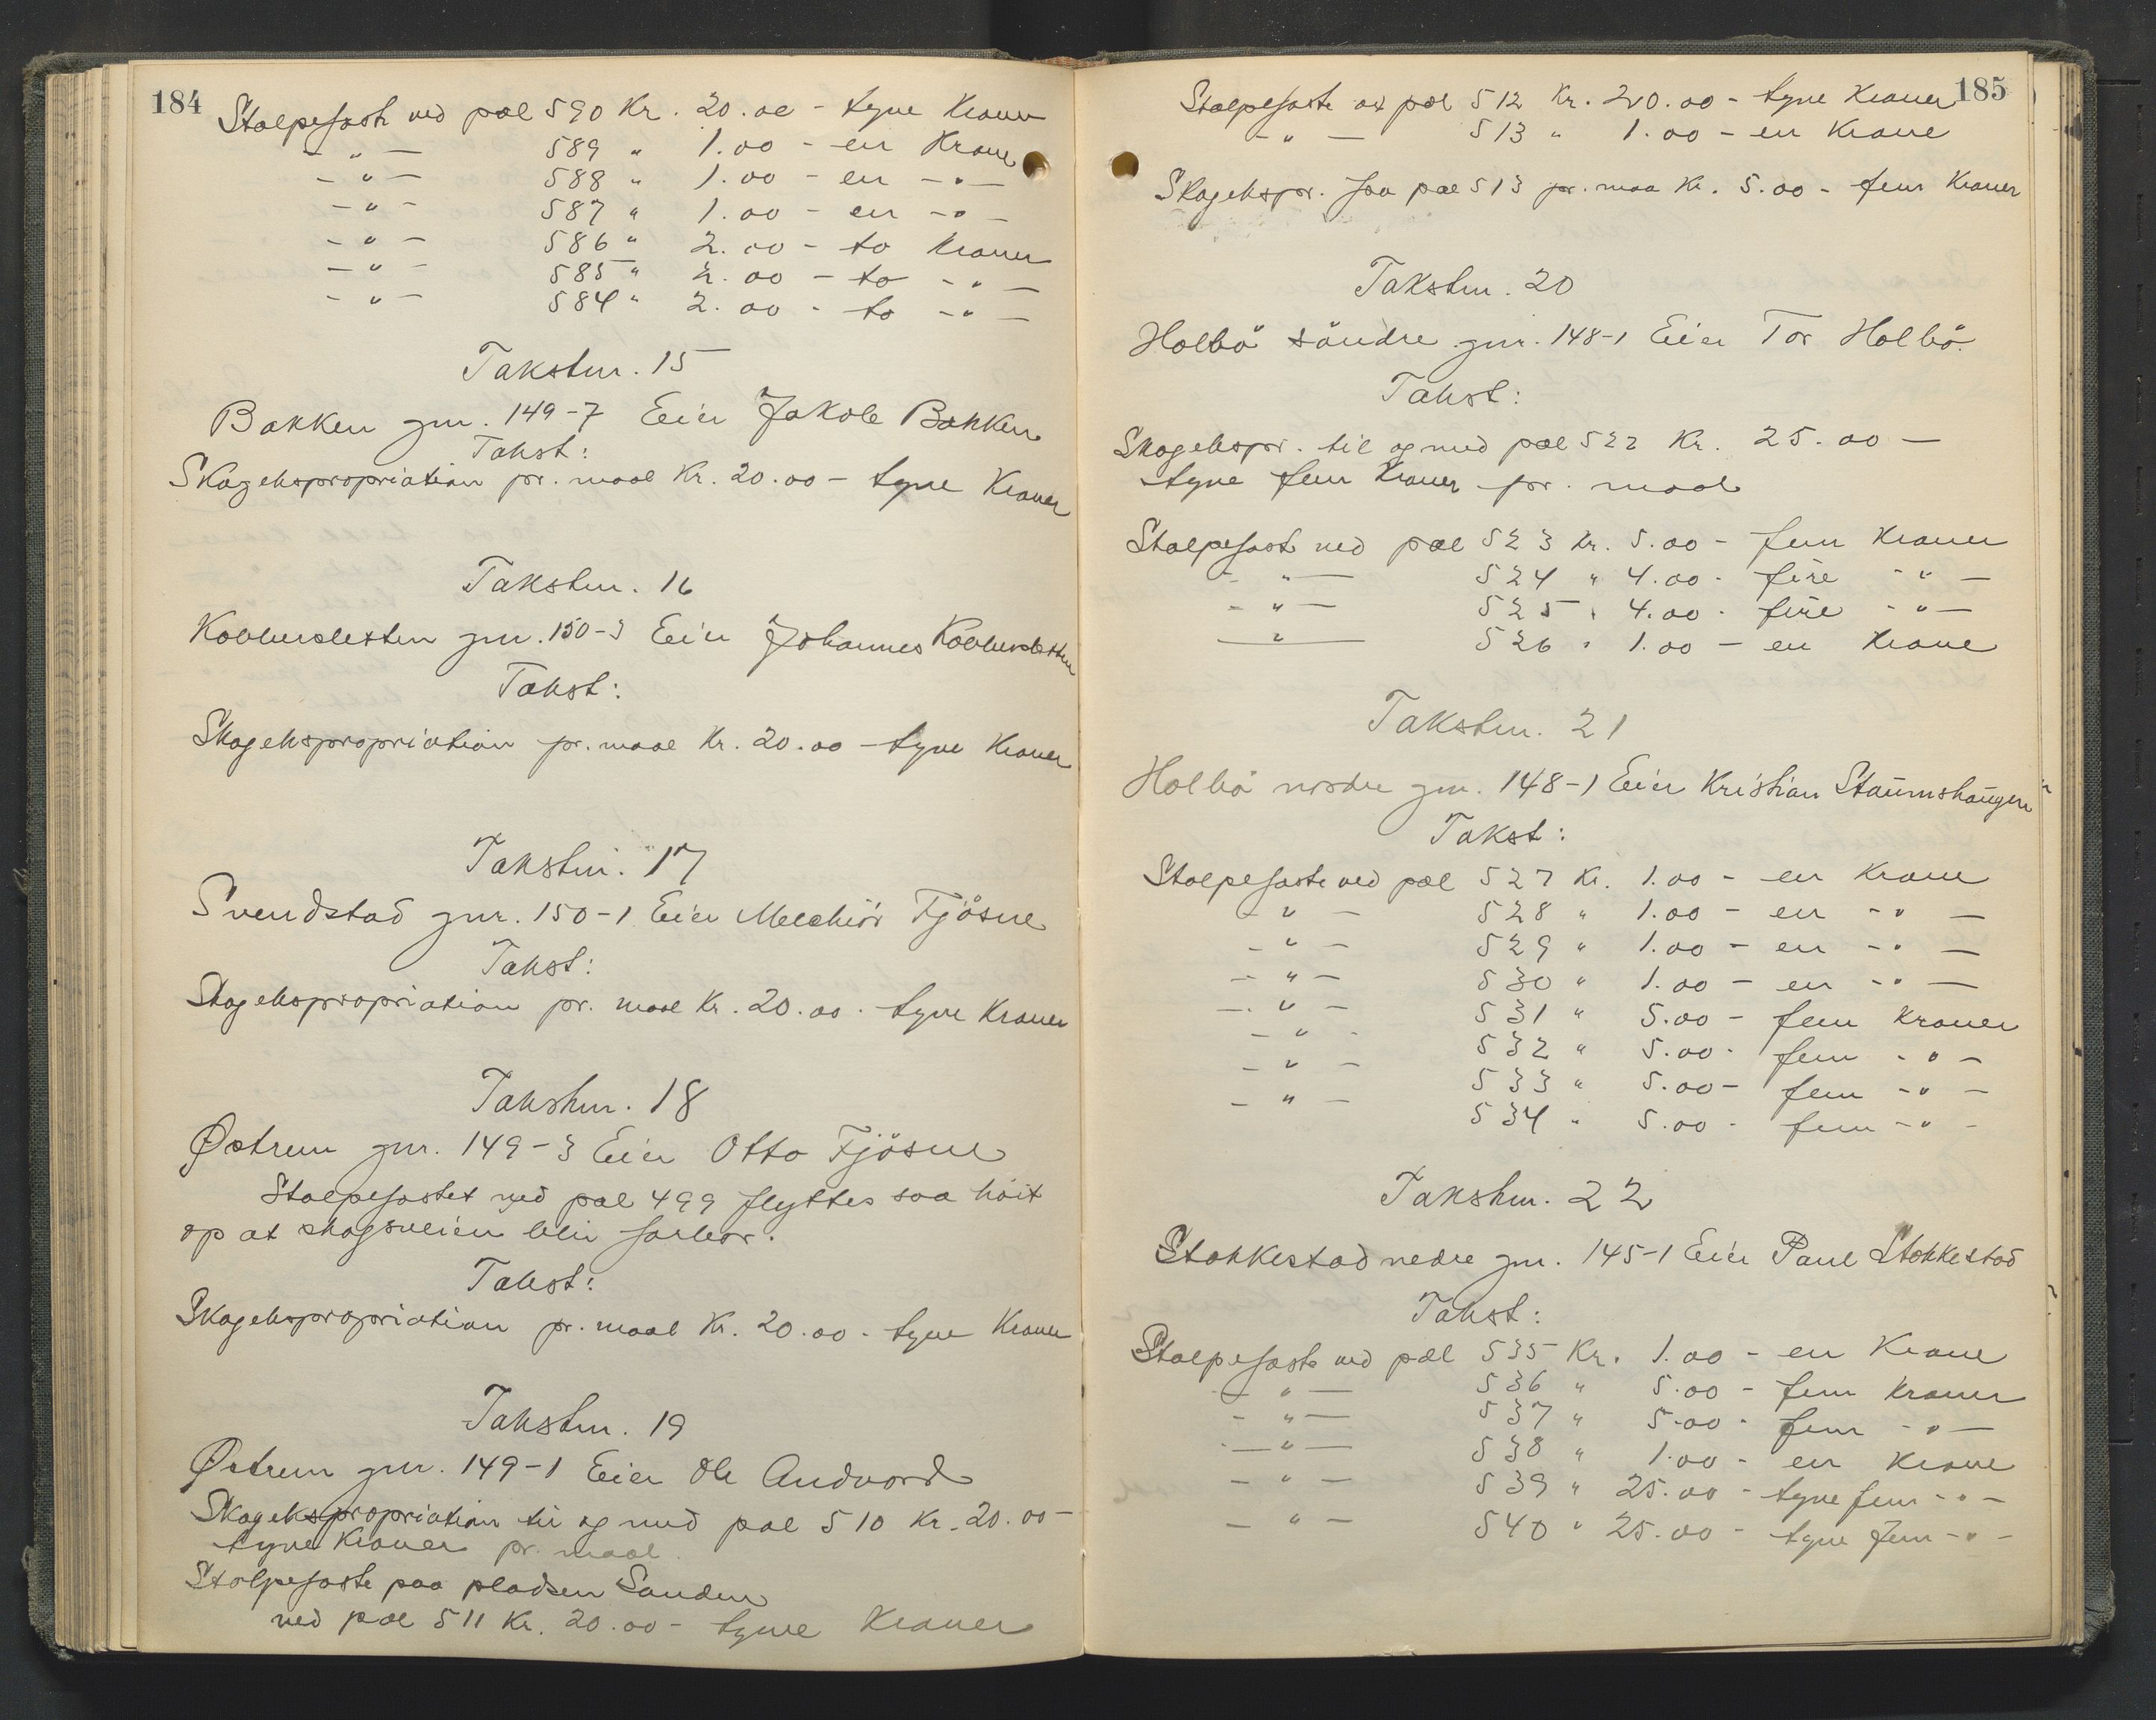 184
Stolpefæste ved pæl 590 Kr. 20.00 - tyve Kroner
- " - 589 " 1.00 - en Krone
- " - 588 " 1.00 - en - " -
- " - 587 " 1.00 - en - " -
- " - 586 " 2.00 - to Kroner
- " - 585 " 2.00 - to - " -
- " - 584 " 2.00 - to - " -
Takstnr. 15
Bakken gnr. 149-7 Eier Jakob Bakken
Takst:
Skogekspropriation pr. maal Kr. 20.00 - tyve Kroner
Takstnr. 16
gnr. 150-3 Eier Johannes
Takst:
Skogekspropriation pr. maal Kr. 20.00 - tyve Kroner
Takstnr. 17
Svendstad gnr. 150-1 Eier Melchiör Fjösne
Takst:
Skogekspropriation pr. maal Kr. 20.00 - tyve Kroner
Takstnr. 18
Østrem gnr. 149-3 Eier Otto Fjösne
Stolpefæstet ved pæl 499 flyttes saa höit
op at skogsveien blir farbar.
Takst:
Skogekspropriation pr. maal Kr. 20.00 - tyve Kroner
Takstnr. 19
Østrem gnr. 149-1 Eier Ole Andvord
Skogekspropriation til og med pæl 510 Kr. 20.00 -
tyve Kroner pr. maal.
Stolpefæste paa pladsen Sanden
ved pæl 511 Kr. 20.00 - tyve Kroner
185
Stolpefæste ved pæl 512 Kr. 20.00 - tyve Kroner
- " - 513 " 1.00 - en Krone
Skogekspr. fra pæl 513 pr. maa Kr. 5.00 - fem Kroner
Takstnr. 20
Holbö söndre gnr. 148-1 Eier Tor Holbö.
Takst:
Skogekspr. til og med pæl 522 Kr. 25.00 -
tyve fem Kroner pr. maal
Stolpefæste ved pæl 523 Kr. 5.00 - fem Kroner
- " - 524 " 4.00 - fire - " -
- " - 525 " 4.00 - fire - " -
- " - 526 " 1.00 - en Krone
Takstnr. 21
Holbö nordre gnr. 148-1 Eier Kristian
Takst:
Stolpefæste ved pæl 527 Kr. 1.00 - en Krone
- " - 528 " 1.00 - en - " -
- " - 529 " 1.00 - en - " -
- " - 530 " 1.00 - en - " -
- " - 531 " 5.00 - fem Kroner
- " - 532 " 5.00 - fem - " -
- " - 533 " 5.00 - fem - " -
- " - 534 " 5.00 - fem - " -
Takstnr. 22
Stokkestad nedre gnr. 145-1 Eier Paul Stokkestad
Takst:
Stolpefæste ved pæl 535 Kr. 1.00 - en Krone
- " - 536 " 5.00 - fem Kroner
- " - 537 " 5.00 - fem - " -
- " - 538 " 1.00 - en Krone
- " - 539 " 25.00 - tyve fem - " -
- " - 540 " 25.00 - tyve fem - " -